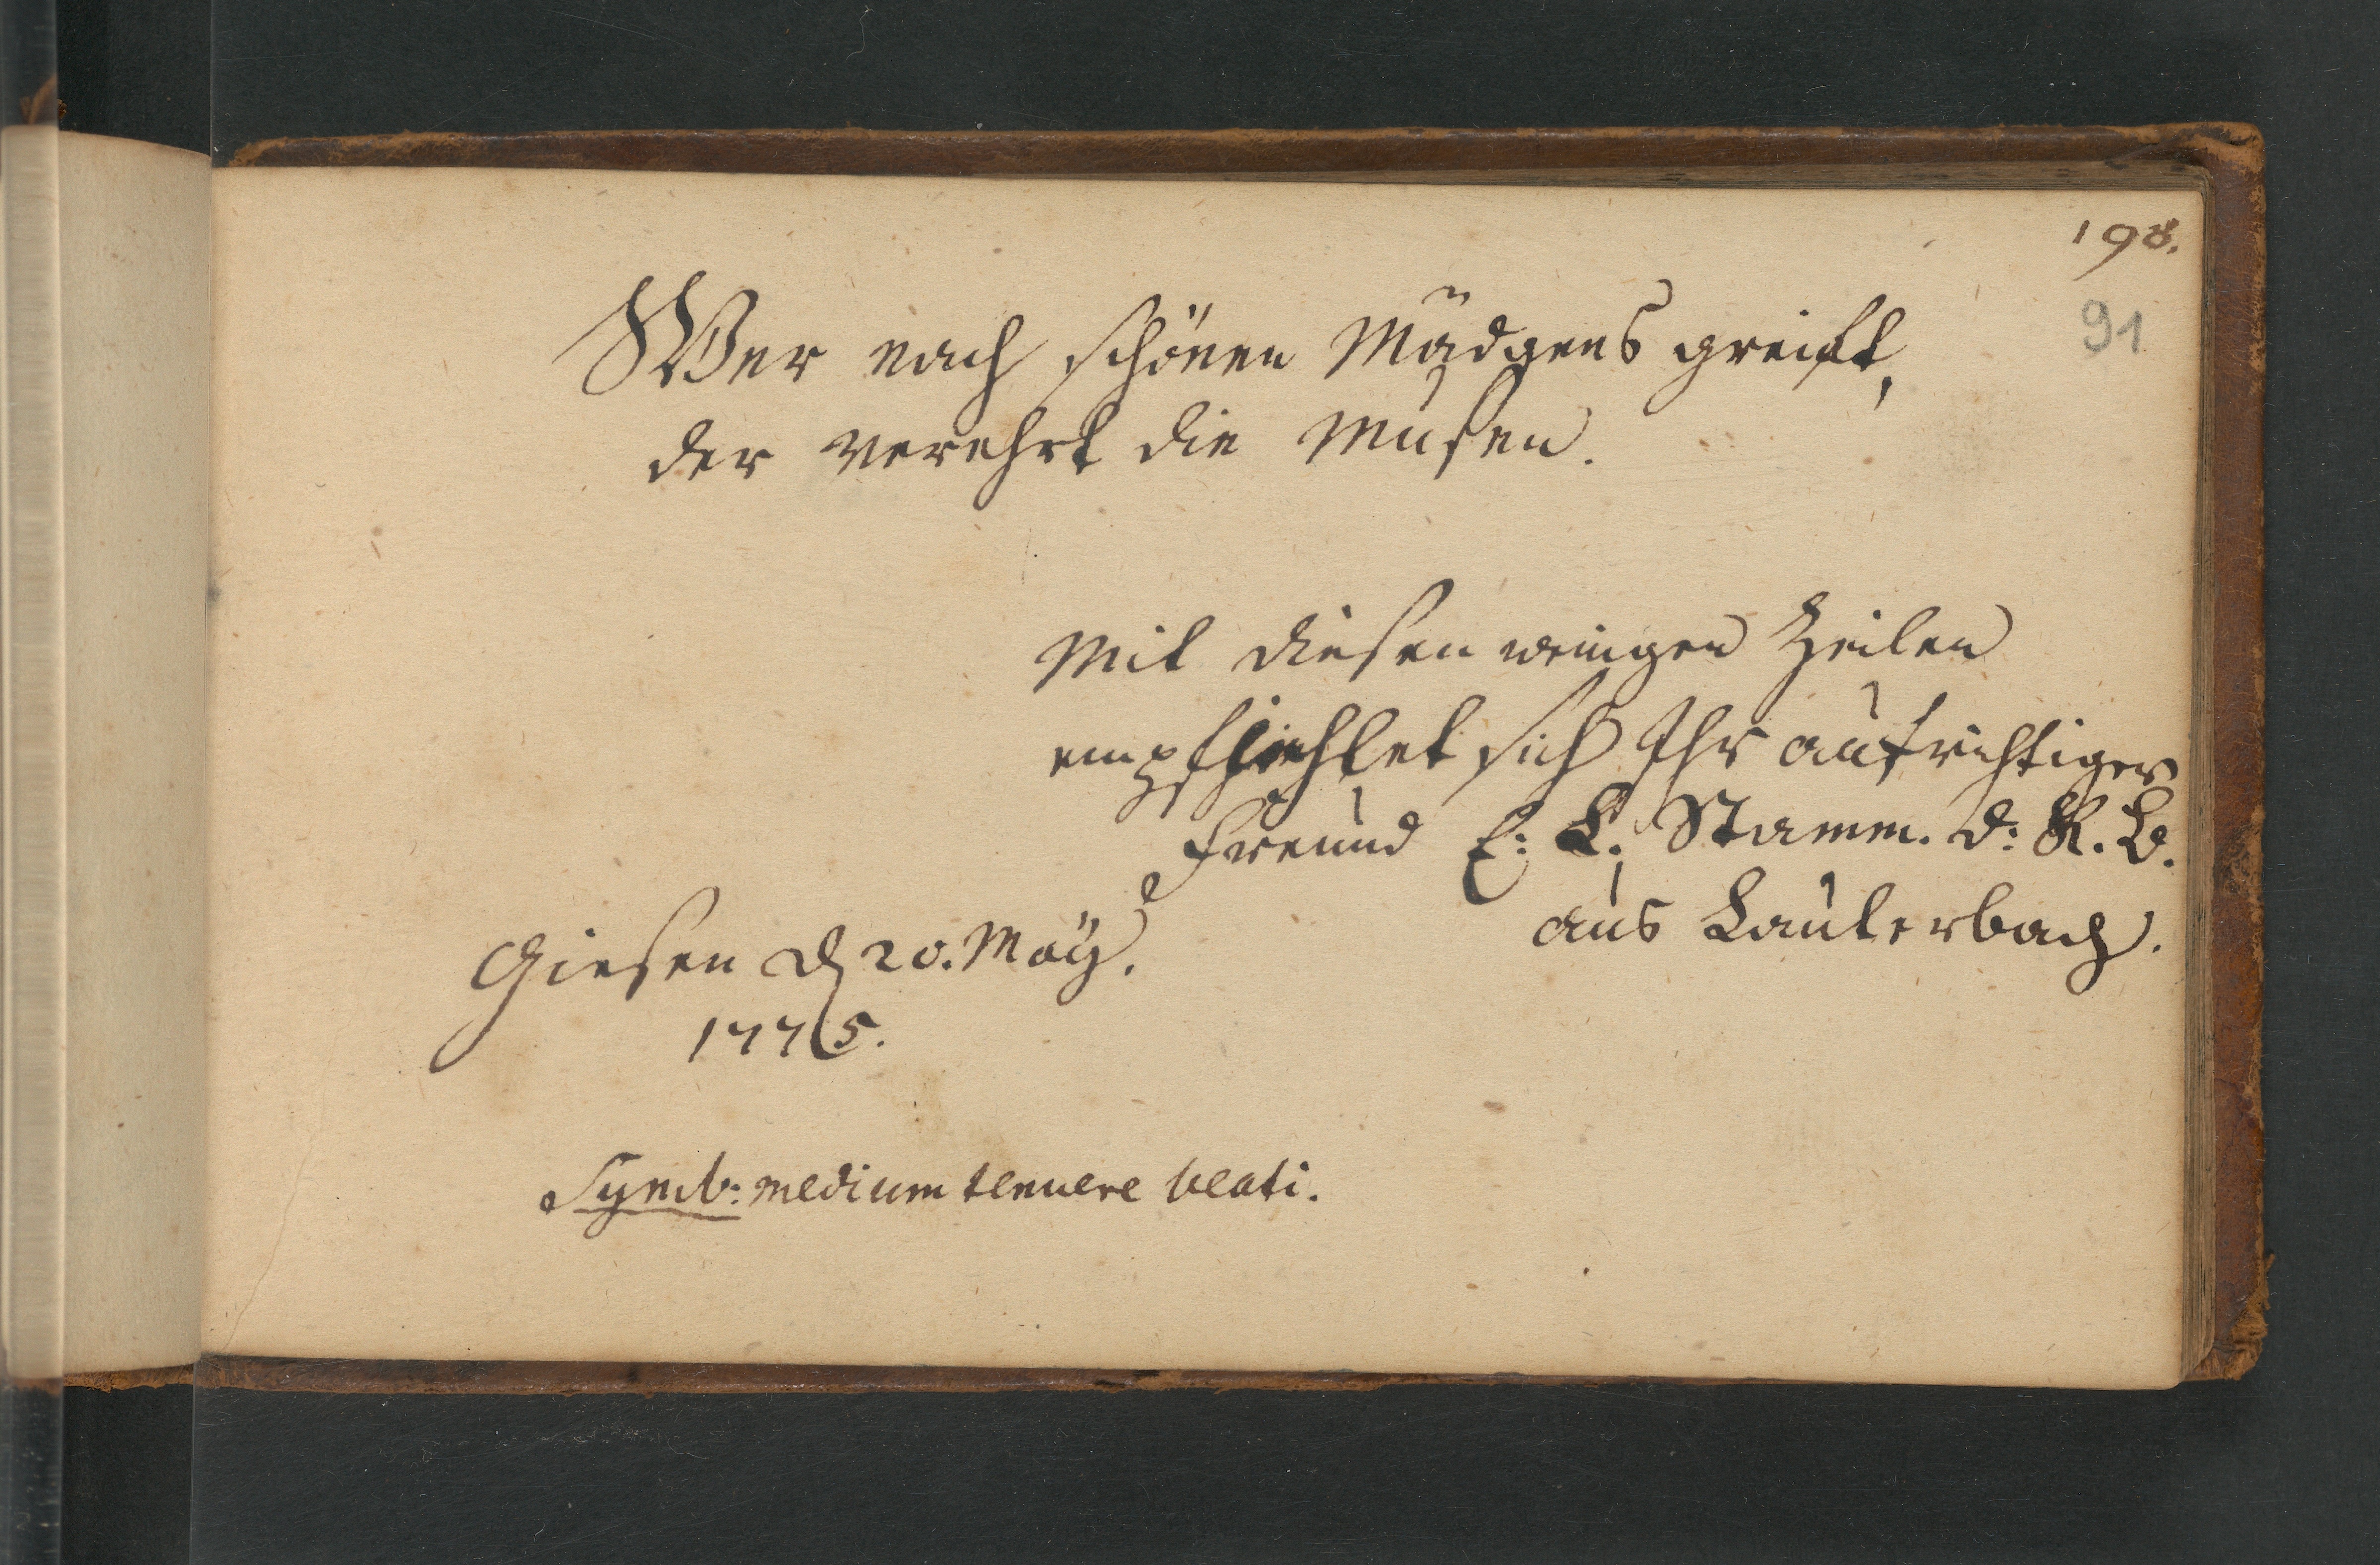 198.
91
Wer nach schönen Mädgens greift,
der verehrt die Musen.
Mit diesen wenigen Zeilen
empfiehlet sich Ihr aufrichtiger
Freund E: L. Stamm. d: R. B.
aus Lauterbach.
Giesen d 20. May.
1775.
Symb: medium tenuere beati.